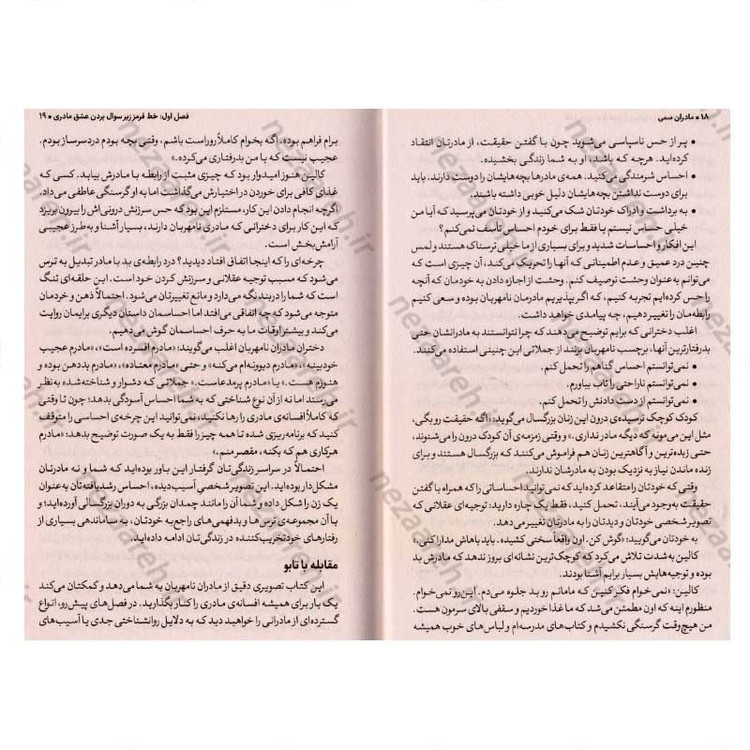 ۱۸ • مادران سمی
• پر از حس ناسپاسی می‌شوید چون با گفتن حقیقت، از مادرتان انتقاد
کرده‌اید. هرچه که باشد، او به شما زندگی بخشیده.
• احساس شرمندگی می‌کنید. همه‌ی مادرها بچه‌هایشان را دوست دارند. باید
برای دوست نداشتن بچه‌هایشان دلیل خوبی داشته باشند.
• به برداشت و ادراک خودتان شک می‌کنید و از خودتان می‌پرسید که آیا من
خیلی حساس نیستم یا فقط برای خودم احساس تأسف نمی‌کنم؟
این افکار و احساسات شدید و برای بسیاری از ما خیلی ترسناک هستند و لمس
چنین درد عمیق و عدم اطمینانی که آنها را تحریک می‌کند، آن چیزی است که
می‌توانم به‌عنوان وحشت توصیف کنم. وحشت از اجازه دادن به خودمان که آنچه
را حس کرده‌ایم تجربه کنیم، که اگر بپذیریم مادرمان نامهربان بوده و سعی کنیم
رابطه‌مان را تغییر دهیم، چه پیامدی خواهد داشت.
اغلب دخترانی که برایم توضیح می‌دهند که چرا نتوانستند به مادرانشان حتی
بدرفتارترین آنها، برچسب نامهربان بزنند از جملاتی این چنینی استفاده می‌کنند.
• نمی‌توانستم احساس گناهم را تحمل کنم.
• نمی‌توانستم ناراحتی را تاب بیاورم.
• نمی‌توانستم از دست دادنش را تحمل کنم.
کودک کوچک ترسیده‌ی درون این زنان بزرگسال می‌گوید: «اگه حقیقت رو بگی،
مثل این می‌مونه که دیگه مادر نداری.» و وقتی زمزمه‌ی آن کودک درون را می‌شنوند،
حتی زبده‌ترین و آگاهترین زنان هم فراموش می‌کنند که بزرگسال هستند و برای
زنده ماندن نیاز به نزدیک بودن به مادرشان ندارند.
وقتی که خودتان را متقاعد کرده‌اید که نمی‌توانید احساساتی را که همراه با گفتن
حقیقت به‌وجود می‌آیند، تحمل کنید، فقط یک چاره دارید: توجیه‌ای عقلانی که
تصویر شخصی خودتان و دیدتان را به مادرتان تغییر می‌دهد.
به خودتان می‌گویید: «گوش کن. اون واقعاً سختی کشیده. باید باهاش مدارا کنی.»
کالین به‌شدت تلاش می‌کرد که کوچک‌ترین نشانه‌ای بروز ندهد که مادرش بد
بوده و توجیه‌هایش بسیار برایم آشنا بودند.
کالین: «نمی‌خوام فکر کنین که مامانم رو بد جلوه می‌دم. این‌رو نمی‌خوام.
منظورم اینه که اون مطمئن می‌شد که ما غذا خوردیم و سقفی بالای سرمون هست.
من هیچ‌وقت گرسنگی نکشیدم و کتاب‌های مدرسه‌ام و لباس‌های خوب همیشه
فصل اول: خط قرمز زیر سوال بردن عشق مادری • ۱۹
برام فراهم بوده. اگه بخوام کاملاً روراست باشم، وقتی بچه بودم دردسرساز بودم.
عجیب نیست که با من بدرفتاری می‌کرده.»
کالین هنوز امیدوار بود که چیزی مثبت از رابطه با مادرش بیابد. کسی که
غذای کافی برای خوردن در اختیارش می‌گذاشت اما به او گرسنگی عاطفی می‌داد.
اگرچه انجام دادن این کار، مستلزم این بود که حس سرزنش درونی‌اش را بیرون بریزد
که این کار برای دخترانی که مادری نامهربان دارند، بسیار آشنا و به‌طرز عجیبی
آرامش‌بخش است.
چرخه‌ای را که اینجا اتفاق افتاد دیدید؟ درد رابطه‌ی بد با مادر تبدیل به ترس
می‌شود که مسبب توجیه عقلانی و سرزنش کردن خود است. این حلقه‌ای تنگ
است که شما را در بند نگه می‌دارد و مانع تغییرتان می‌شود. احتمالاً ذهن و خردمان
متوجه می‌شود که چه اتفاقی می‌افتد اما احساسمان داستان دیگری برایمان روایت
می‌کند و بیشتر اوقات ما به حرف احساسمان گوش می‌دهیم.
دختران مادران نامهربان اغلب می‌گویند: «مادرم افسرده است»، «مادرم عجیب
خودبینه»، «مادرم دیوونه‌ام می‌کنه» و حتی «مادرم معتاده»، «مادرم بددهن بوده و
هنوزم هست.» یا «مادرم پرمدعاست.» جملاتی که دشوار و شناخته‌شده به‌نظر
می‌رسند اما نه از آن نوع شناختی که به شما احساس آسودگی بدهد؛ چون تا وقتی
که کاملاً افسانه‌ی مادری را رها نکنید، نمی‌توانید این چرخه‌ی احساسی را متوقف
کنید که برنامه‌ریزی شده تا همه چیز را فقط به یک صورت توضیح بدهد: «مادرم
هرکاری هم که بکنه، مقصر منم.»
احتمالاً در سراسر زندگی‌تان گرفتار این باور بوده‌اید که شما و نه مادرتان
مشکل‌دار بوده‌اید. این تصویر شخصی آسیب‌دیده، احساس رشدیافته‌تان به‌عنوان
یک زن را شکل داده و شما آن را مانند چمدان بزرگی به دوران بزرگسالی آورده‌اید؛ و
با آن مجموعه‌ی ترس‌ها و بدفهمی‌های راجع‌به خودتان، به ساماندهی بسیاری از
رفتارهای خودتخریب‌کننده در زندگی‌تان ادامه داده‌اید.
مقابله با تابو
این کتاب تصویری دقیق از مادران نامهربان به شما می‌دهد و کمکتان می‌کند
یک بار برای همیشه افسانه‌ی مادری را کنار بگذارید. در فصل‌های پیش‌رو، انواع
گسترده‌ای از مادرانی را خواهید دید که به دلایل روانشناختی جدی یا آسیب‌های
nezaareh.ir